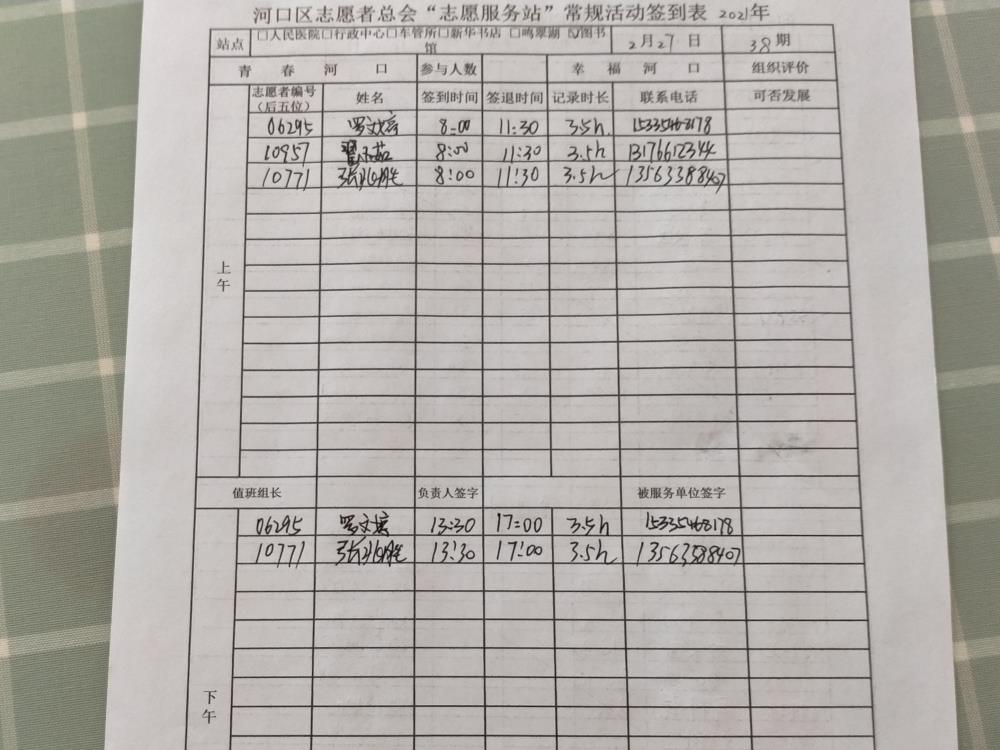 河口区志愿者总会“志愿服务站”常规活动签到表 2021年
站点 □人民医院□行政中心□车管所□新华书店 □鸣翠湖 ☑图书馆 2月27日 38期
青春河口 参与人数 幸福河口 组织评价
志愿者编号（后五位） 姓名 签到时间 签退时间 记录时长 联系电话 可否发展
上午
06295 8:00 11:30 3.5h 15335468178
10957 8:00 11:30 3.5h 13176612344
10771 8:00 11:30 3.5h 13563388407
值班组长 负责人签字 被服务单位签字
06295 13:30 17:00 3.5h 15335468178
10771 13:30 17:00 3.5h 13563388407
下午